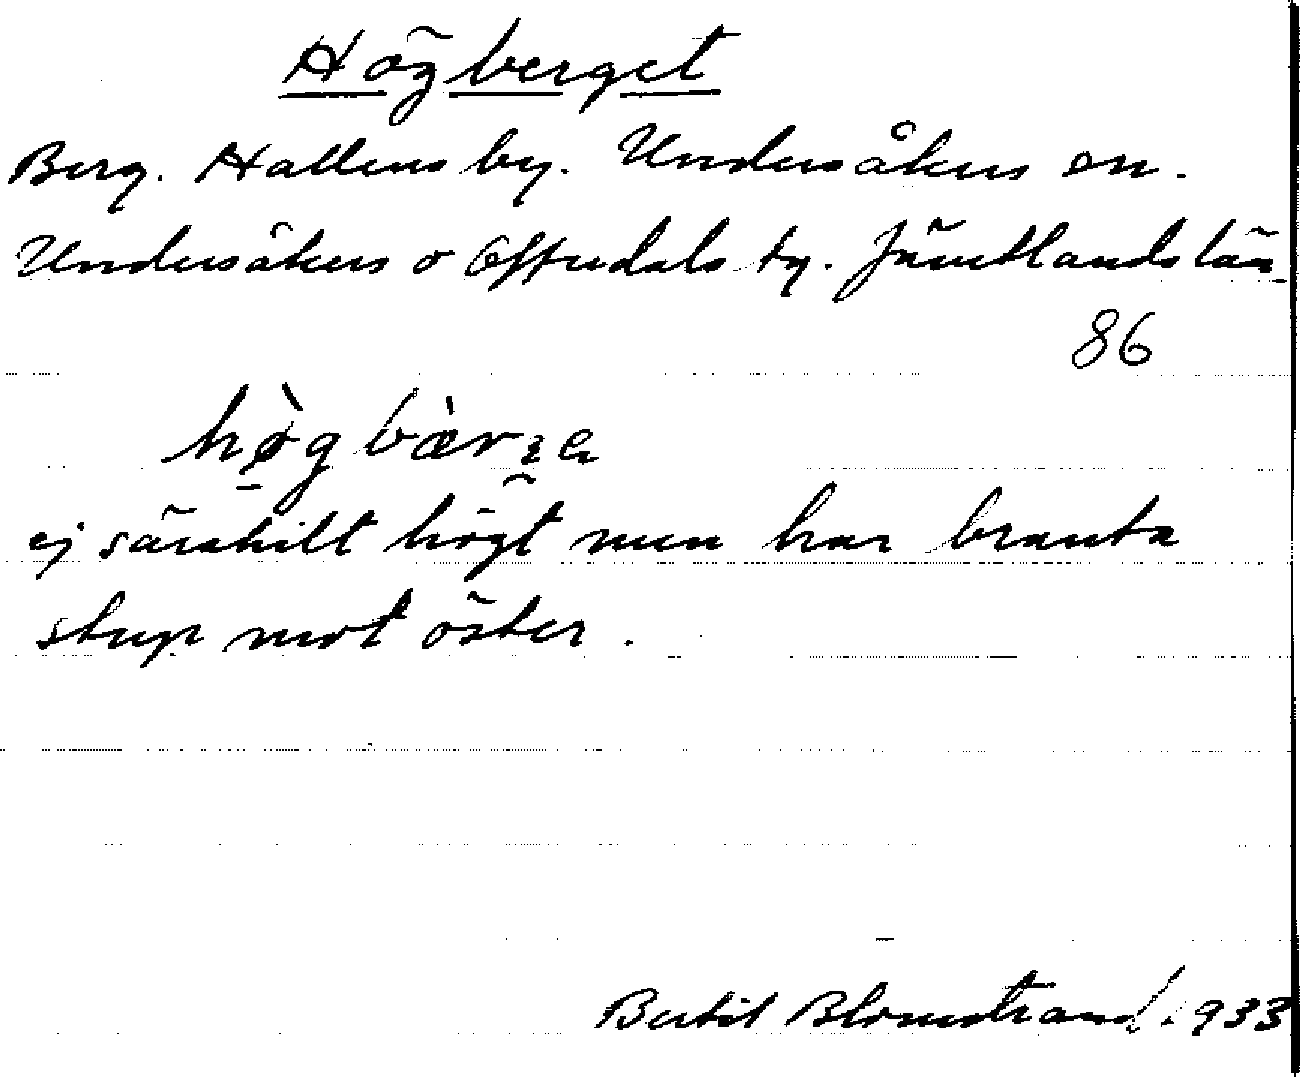 Högberget
Berg. Hallens by. Undersåkers sn.
Undersåkers o Offerdals tg. Jämtlands län
86
hø̀gbæ̀rʒe
ej särskilt högt men har branta
stup mot öster.
Bertil Blomstrand. 1933